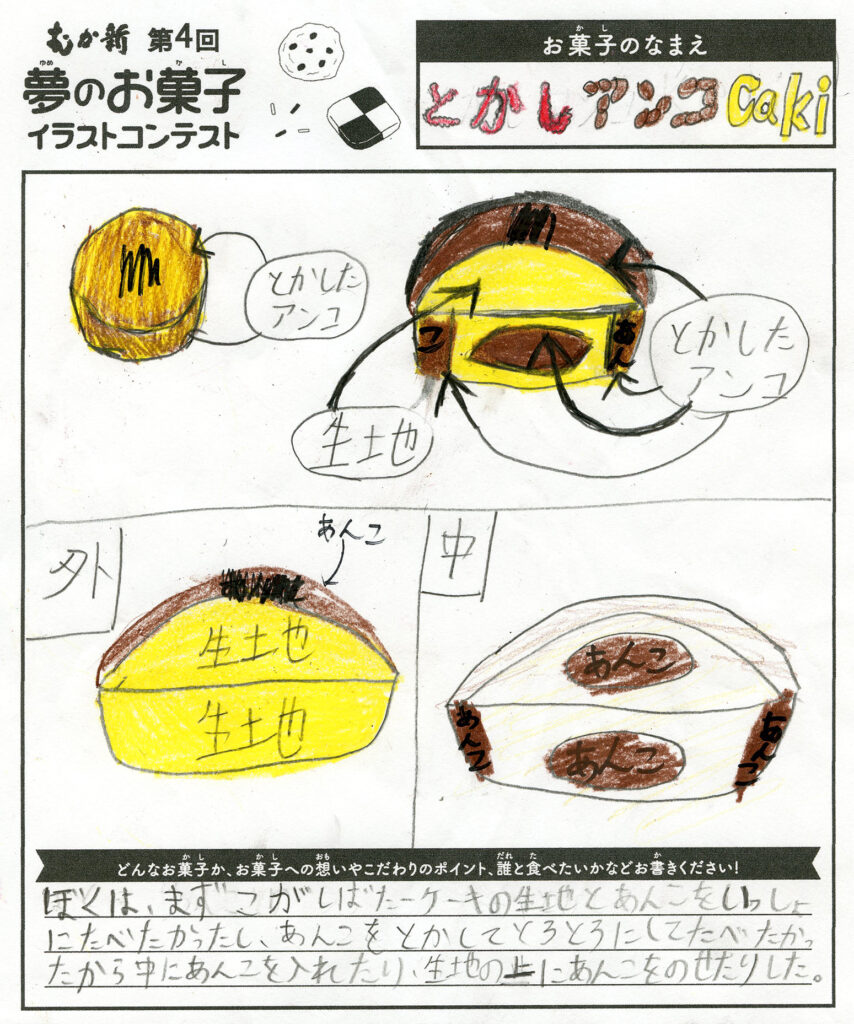 むか新 第4回
夢のお菓子
イラストコンテスト
お菓子のなまえ
とかしアンコCaki
とかした
アンコ
こ
あん
とかした
アンコ
生土也
外
あんこ
生土也
生土也
中
あんこ
あんこ
あんこ
あんこ
どんなお菓子か、お菓子への想いやこだわりのポイント、誰と食べたいかなどお書きください!
ぼくは、まずこがしばたーケーキの生地とあんこをいっしょ
にたべたかったし、あんこをとかしてとろとろにしてたべたかっ
たから中にあんこを入れたり、生地の上にあんこをのせたりした。